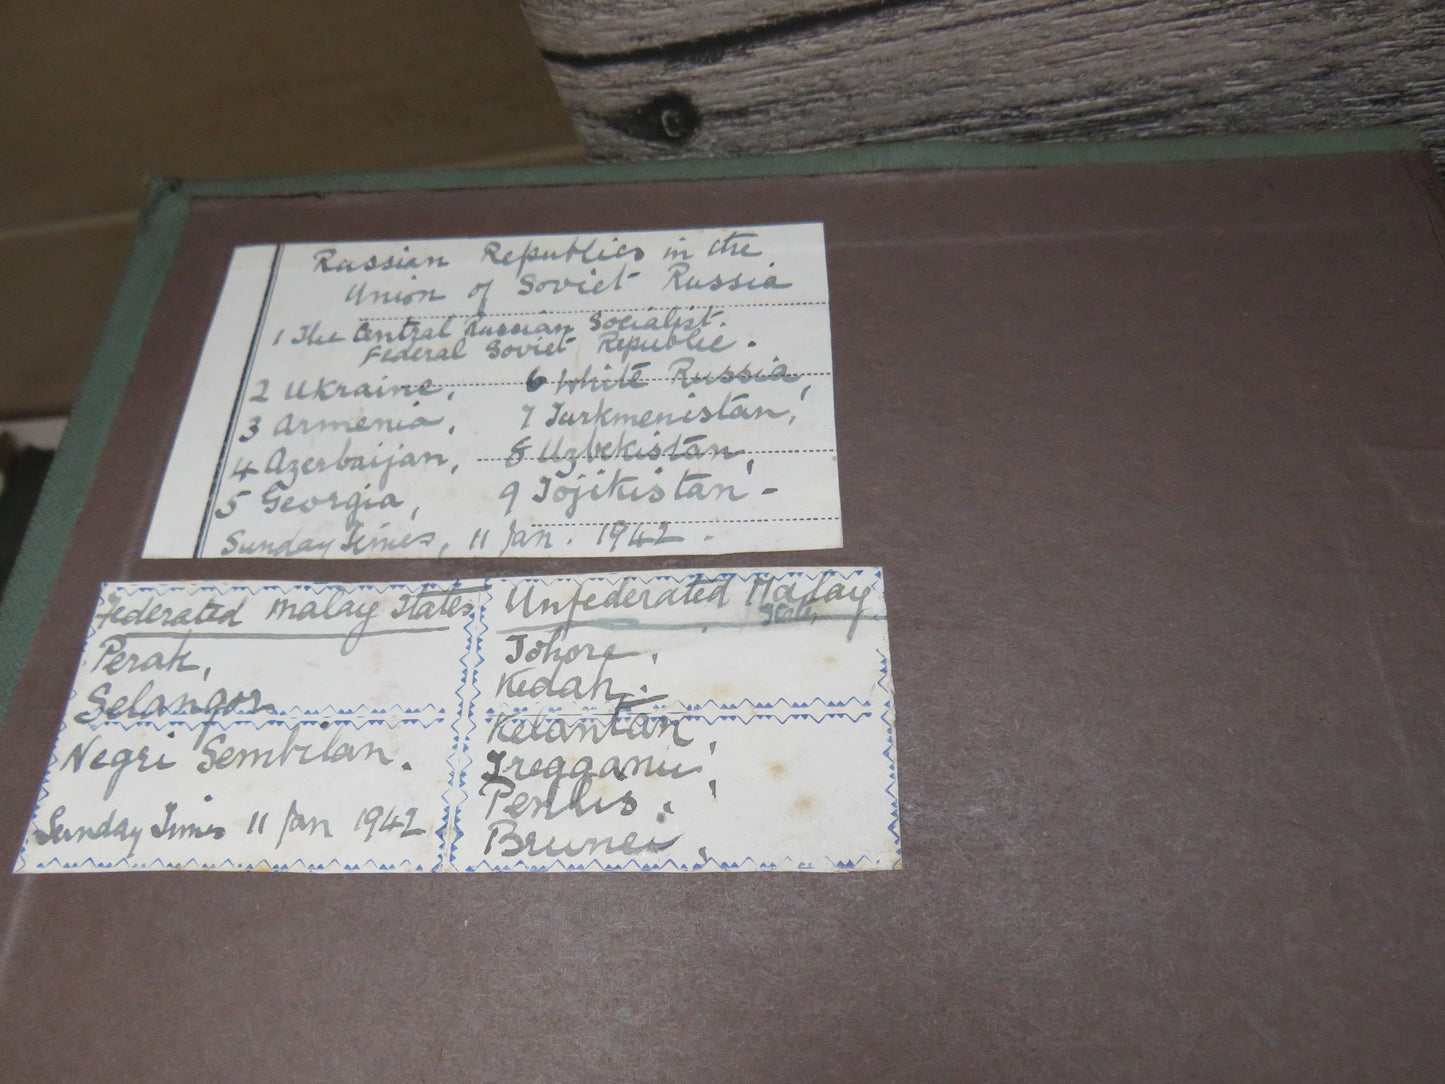 Russian Republics in the
Union of Soviet Russia
1 The Central Russian Socialist.
Federal Soviet Republic.
2 Ukraine,
3 Armenia,
4 Azerbaijan,
5 Georgia,
6 White Russia,
7 Turkmenistan,
8 Uzbekistan,
9 Tojikistan -
Sunday Times, 11 Jan. 1942.
Federated Malay States
Perak,
Selangor
Negri Sembilan.
Sunday Times 11 Jan 1942
Unfederated Malay
States
Johore,
Kedah,
Kelantan,
Tregganu,
Perlis,
Brunei,